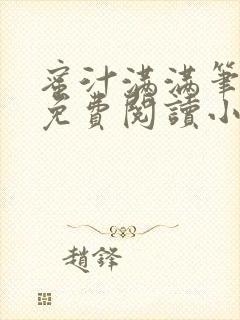 蜜汁满满筆
免費閱讀小
趙鋒